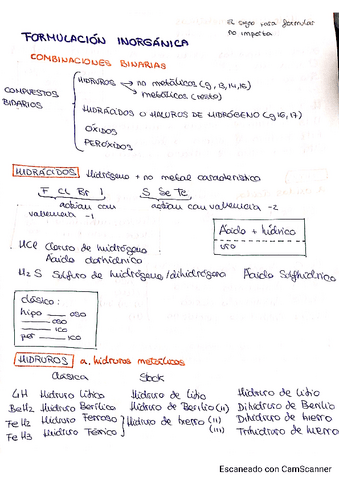 El signo para formular
no importa
FORMULACIÓN INORGÁNICA
COMBINACIONES BINARIAS
COMPUESTOS BINARIOS
HIDRUROS → no metálicos (g, 13, 14, 15)
→ metálicos (resto)
HIDRÁCIDOS O HALUROS DE HIDRÓGENO (g 16, 17)
ÓXIDOS
PERÓXIDOS
HIDRÁCIDOS Hidrógeno + no metal característico
F Cl Br I S Se Te
actúan con valencia -1
actúan con valencia -2
Ácido + hídrico
uro
HCl Cloruro de hidrógeno
Ácido clorhídrico
H2S Sulfuro de hidrógeno/dihidrógeno Ácido Sulfhídrico
clásico:
hipo ___ oso
___ oso
___ ico
per ___ ico
HIDRUROS a. hidruros metálicos
Clásica Stock
LiH Hidruro Lítico Hidruro de Litio Hidruro de Litio
BeH2 Hidruro Berílico Hidruro de Berilio (II) Dihidruro de Berilio
FeH2 Hidruro Ferroso Hidruro de hierro (II) Dihidruro de hierro
FeH3 Hidruro Férrico (III) Trihidruro de hierro
Escaneado con CamScanner